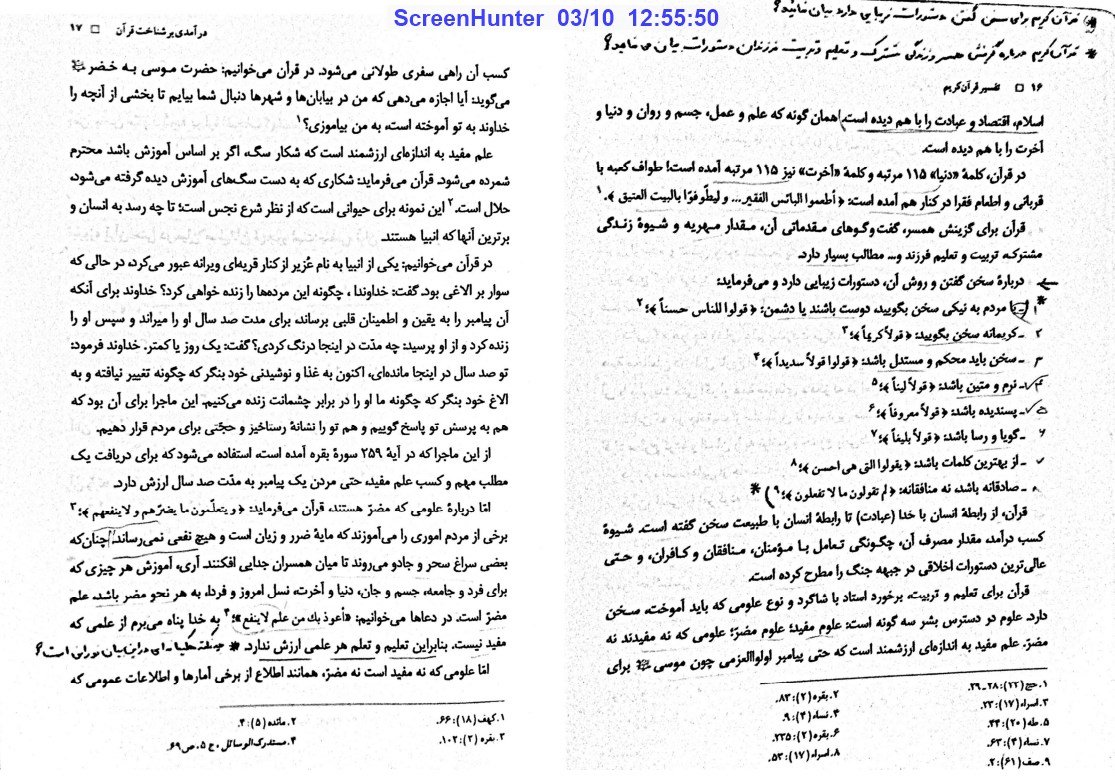 ScreenHunter 03/10 12:55:50
قرآن کریم برای سخن گفتن دستورات زیبایی دارد بیان نمائید؟
* قرآن کریم درباره گزینش همسر و زندگی مشترک و تعلیم و تربیت فرزندان دستورات بیان می نماید؟
۱۶ □ تفسیر قرآن کریم
اسلام، اقتصاد و عبادت را با هم دیده است. همان گونه که علم و عمل، جسم و روان و دنیا و
آخرت را با هم دیده است.
در قرآن، کلمهٔ «دنیا» ۱۱۵ مرتبه و کلمهٔ «آخرت» نیز ۱۱۵ مرتبه آمده است! طواف کعبه با
قربانی و اطعام فقرا در کنار هم آمده است: ﴿ أطعموا البائس الفقیر... و لیطّوفوا بالبیت العتیق ﴾.۱
قرآن برای گزینش همسر، گفت‌وگوهای مقدماتی آن، مقدار مهریه و شیوهٔ زندگی
مشترک، تربیت و تعلیم فرزند و... مطالب بسیار دارد.
دربارهٔ سخن گفتن و روش آن، دستورات زیبایی دارد و می‌فرماید:
* ۱ ـ با مردم به نیکی سخن بگویید، دوست باشند یا دشمن: ﴿ قولوا للناس حسناً ﴾؛۲
۲ ـ کریمانه سخن بگویید: ﴿ قولاً کریماً ﴾؛۳
۳ ـ سخن باید محکم و مستدل باشد: ﴿ قولوا قولاً سدیداً ﴾؛۴
۴ ـ نرم و متین باشد: ﴿ قولاً لیناً ﴾؛۵
۵ ـ پسندیده باشد: ﴿ قولاً معروفاً ﴾؛۶
۶ ـ گویا و رسا باشد: ﴿ قولاً بلیغاً ﴾؛۷
۷ ـ از بهترین کلمات باشد: ﴿ یقولوا التی هی احسن ﴾؛۸
۸ ـ صادقانه باشد، نه منافقانه: ﴿ لم تقولون ما لا تفعلون ﴾؛۹ *
قرآن، از رابطهٔ انسان با خدا (عبادت) تا رابطهٔ انسان با طبیعت سخن گفته است. شیوهٔ
کسب درآمد، مقدار مصرف آن، چگونگی تعامل با مؤمنان، منافقان و کافران، و حتی
عالی‌ترین دستورات اخلاقی در جبهه جنگ را مطرح کرده است.
قرآن برای تعلیم و تربیت، برخورد استاد با شاگرد و نوع علومی که باید آموخت، سخن
دارد. علوم در دسترس بشر سه گونه است: علوم مفید؛ علوم مضرّ؛ علومی که نه مفیدند نه
مضرّ. علم مفید به اندازه‌ای ارزشمند است که حتی پیامبر اولواالعزمی چون موسی برای
۱. حج (۲۲): ۲۸ ـ ۲۹.
۲. بقره (۲): ۸۳.
۳. اسراء (۱۷): ۲۳.
۴. نساء (۴): ۹.
۵. طه (۲۰): ۴۴.
۶. بقره (۲): ۲۳۵.
۷. نساء (۴): ۶۳.
۸. اسراء (۱۷): ۵۳.
۹. صف (۶۱): ۲.
درآمدی بر شناخت قرآن □ ۱۷
کسب آن راهی سفری طولانی می‌شود. در قرآن می‌خوانیم: حضرت موسی به خضر
می‌گوید: آیا اجازه می‌دهی که من در بیابان‌ها و شهرها دنبال شما بیایم تا بخشی از آنچه را
خداوند به تو آموخته است، به من بیاموزی؟۱
علم مفید به اندازه‌ای ارزشمند است که شکار سگ، اگر بر اساس آموزش باشد محترم
شمرده می‌شود. قرآن می‌فرماید: شکاری که به دست سگ‌های آموزش دیده گرفته می‌شود،
حلال است.۲ این نمونه برای حیوانی است که از نظر شرع نجس است؛ تا چه رسد به انسان و
برترین آنها که انبیا هستند.
در قرآن می‌خوانیم: یکی از انبیا به نام عُزیر از کنار قریه‌ای ویرانه عبور می‌کرد، در حالی که
سوار بر الاغی بود. گفت: خداوندا ، چگونه این مرده‌ها را زنده خواهی کرد؟ خداوند برای آنکه
آن پیامبر را به یقین و اطمینان قلبی برساند، برای مدت صد سال او را میراند و سپس او را
زنده کرد و از او پرسید: چه مدّت در اینجا درنگ کردی؟ گفت: یک روز یا کمتر. خداوند فرمود:
تو صد سال در اینجا مانده‌ای، اکنون به غذا و نوشیدنی خود بنگر که چگونه تغییر نیافته و به
الاغ خود بنگر که چگونه ما او را در برابر چشمانت زنده می‌کنیم. این ماجرا برای آن بود که
هم به پرسش تو پاسخ گوییم و هم تو را نشانهٔ رستاخیز و حجّتی برای مردم قرار دهیم.
از این ماجرا که در آیهٔ ۲۵۹ سورهٔ بقره آمده است، استفاده می‌شود که برای دریافت یک
مطلب مهم و کسب علم مفید، حتی مردن یک پیامبر به مدّت صد سال ارزش دارد.
امّا دربارهٔ علومی که مضرّ هستند، قرآن می‌فرماید: ﴿ و یتعلّمون ما یضرّهم و لاینفعهم ﴾؛۳
برخی از مردم اموری را می‌آموزند که مایهٔ ضرر و زیان است و هیچ نفعی نمی‌رساند، چنان‌که
بعضی سراغ سحر و جادو می‌روند تا میان همسران جدایی افکنند. آری، آموزش هر چیزی که
برای فرد و جامعه، جسم و جان، دنیا و آخرت، نسل امروز و فردا، به هر نحو مضر باشد، علم
مضرّ است. در دعاها می‌خوانیم: «أعوذ بك من علم لاینفع»؛۴ به خدا پناه می‌برم از علمی که
مفید نیست. بنابراین تعلیم و تعلم هر علمی ارزش ندارد. *
امّا علومی که نه مفید است نه مضرّ، همانند اطلاع از برخی آمارها و اطلاعات عمومی که
۱. کهف (۱۸): ۶۶.
۲. مائده (۵): ۴.
۳. بقره (۲): ۱۰۲.
۴. مستدرک الوسائل ، ج ۵، ص ۶۹.